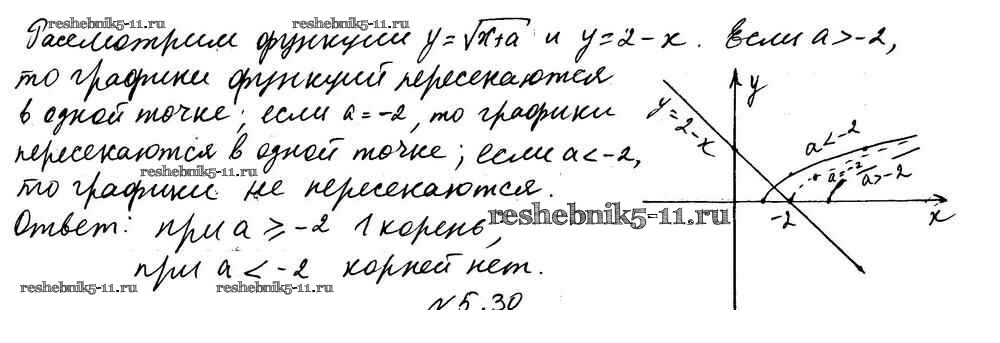 reshebnik5-11.ru reshebnik5-11.ru reshebnik5-11.ru
Рассмотрим функции y=√x+a и y=2-x. Если a>-2,
то графики функций пересекаются
в одной точке; если a=-2, то графики
пересекаются в одной точке; если a<-2,
reshebnik5-11.ru
то графики не пересекаются.
Ответ: при a≥-2 1 корень,
при a<-2 корней нет.
reshebnik5-11.ru reshebnik5-11.ru
№5.30
y
y=2-x
a<-2
a=-2
a>-2
reshebnik5-11.ru
-2
x